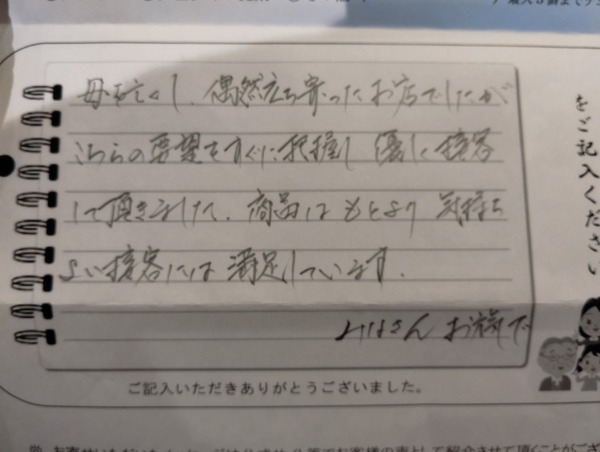 母を亡くし、偶然立ち寄ったお店でしたが
こちらの要望をすぐに把握し 優しく接客
して頂きました。商品はもとより 気持ち
よい接客には 満足しています。
お陰で
をご記入ください
ご記入いただきありがとうございました。